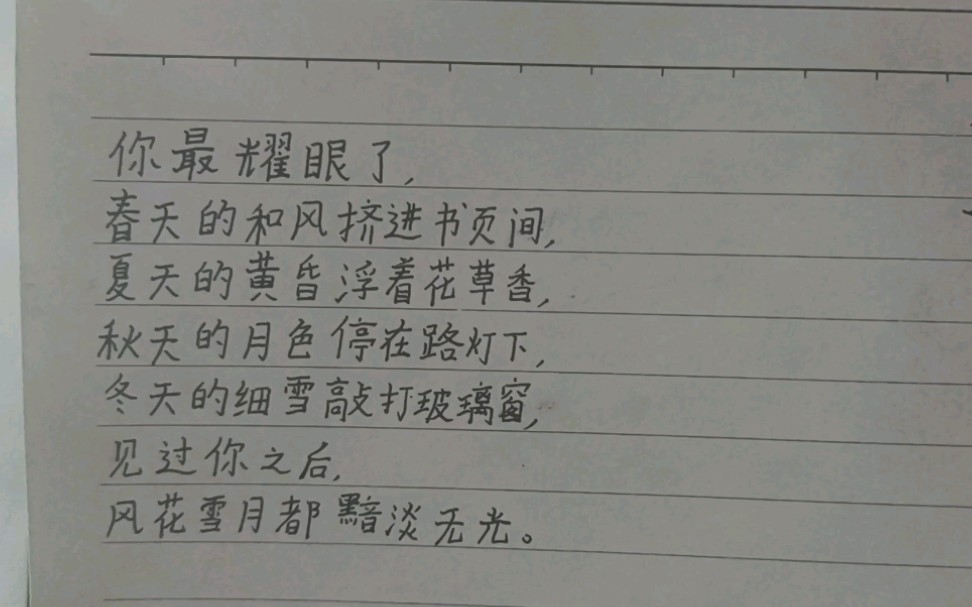 你最耀眼了,
春天的和风挤进书页间,
夏天的黄昏浮着花草香,
秋天的月色停在路灯下,
冬天的细雪敲打玻璃窗,
见过你之后,
风花雪月都黯淡无光。